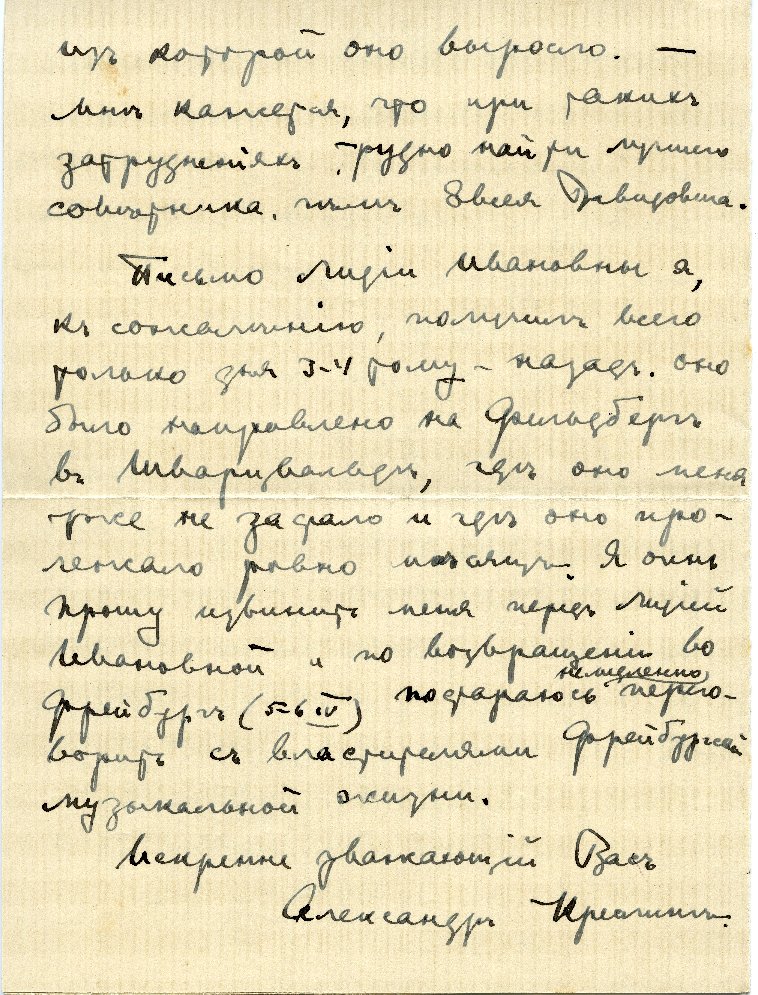 изъ которой оно выросло. —
мнѣ кажется, что при такихъ
затрудненіяхъ, трудно найти лучшаго
совѣтника, чѣмъ Євсея Давидовича.
Письмо Лидіи Ивановны я,
къ сожалѣнію, получилъ всего
только дня 3-4 тому-назадъ. Оно
было направлено на Фельдбергъ
въ Шварцвальдъ, гдѣ оно меня
уже не застало и гдѣ оно про-
лежало ровно мѣсяцъ. Я очень
прошу извинить меня передъ Лидіей
Ивановной и по возвращеніи во
Фрейбургъ (5-6 IV) постараюсь немедленно перего-
ворить съ властителями Фрейбургской
музыкальной жизни.
Искренне уважающій Васъ
Александръ